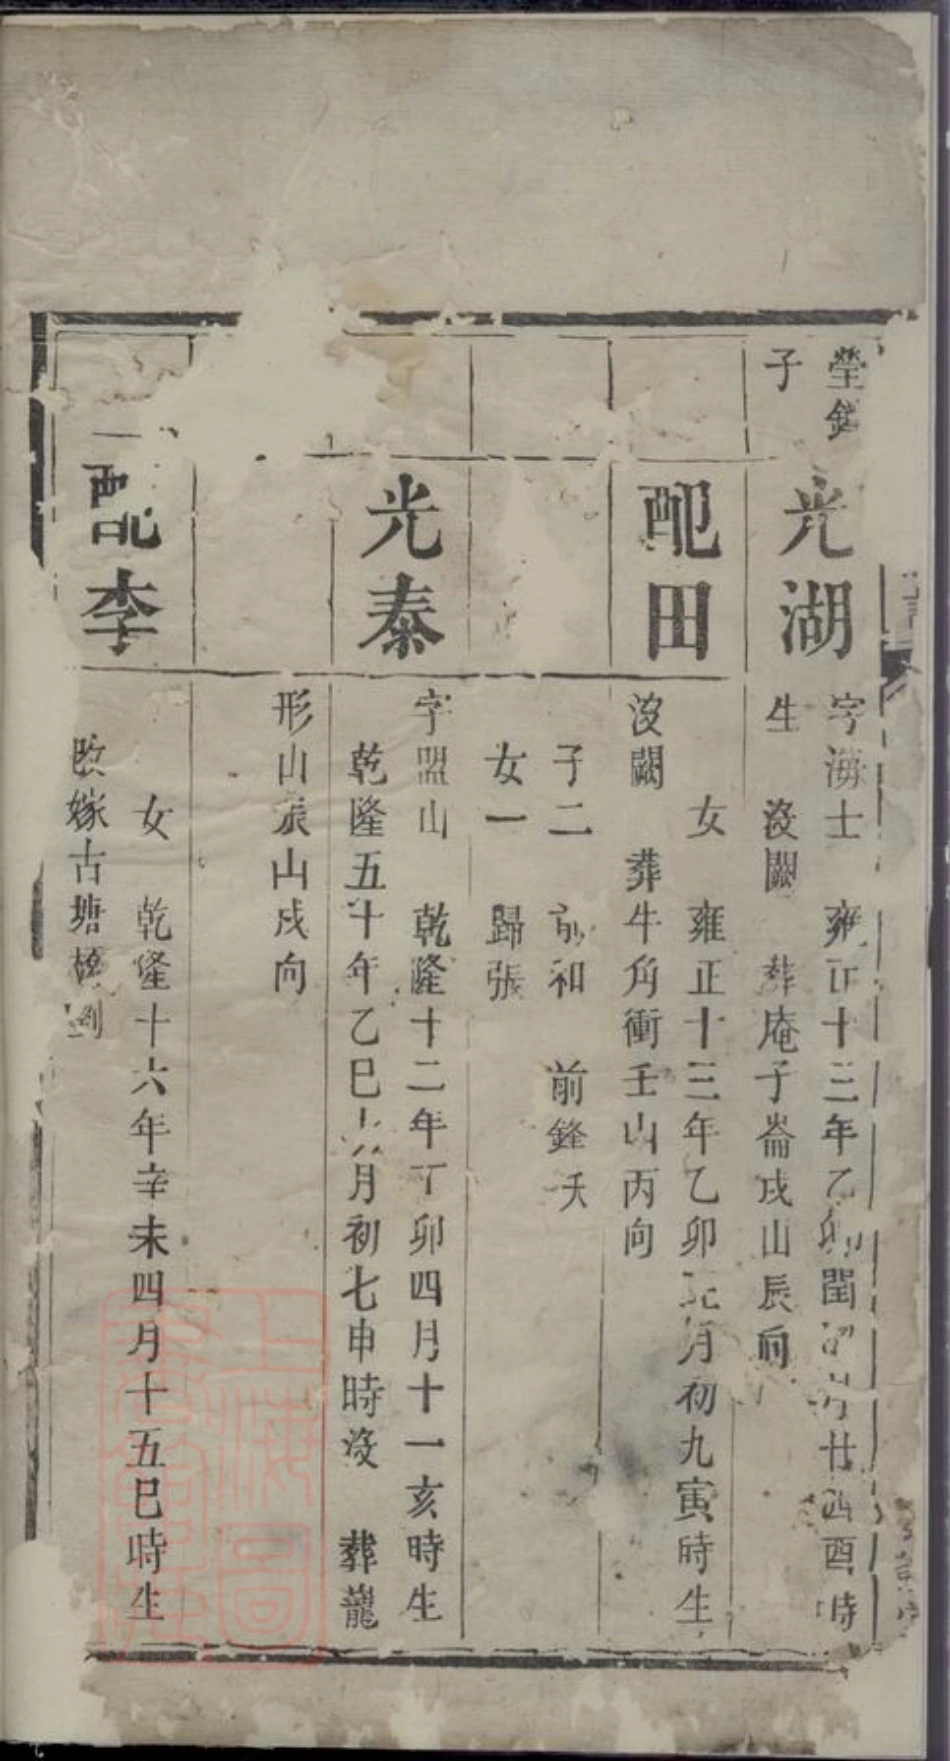 瑩鑑
子
光湖
字海士 雍正十三年乙卯閏四月廿四酉時
生 沒闕 葬庵子崙戌山辰向
配田
女 雍正十三年乙卯 月初九寅時生
沒闕 葬牛角衝壬山丙向
子二 前和 前鋒夭
女一 歸張
光泰
字盟山 乾隆十二年丁卯四月十一亥時生
乾隆五十年乙巳 月初七申時沒 葬龍
形山辰山戌向
配李
女 乾隆十六年辛未四月十五巳時生
改嫁古塘橋劉
上海圖書館藏